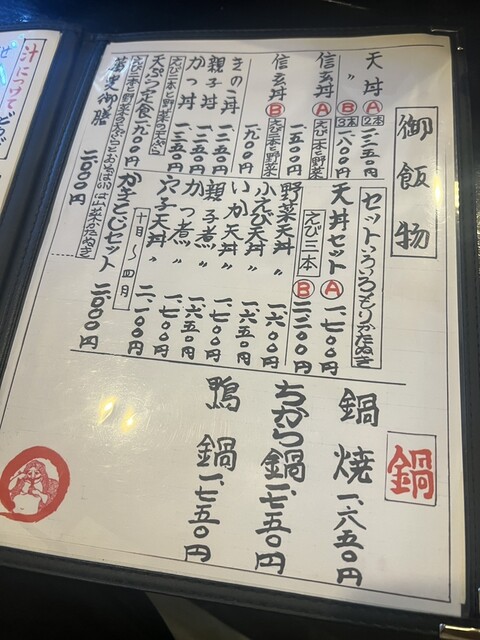 御飯物
天丼 Ⓐ 2本 一、三五〇円
〃 Ⓑ 3本 一、八〇〇円
信玄丼 Ⓐ えび一本と野菜
一、五〇〇円
信玄丼 Ⓑ えび二本と野菜
一、九〇〇円
きのこ丼 一、二五〇円
親子丼 一、二五〇円
かつ丼 一、三五〇円
えび二本と野菜の天ぷら
天ぷら定食 一、九〇〇円
蕎麦御膳
二、〇〇〇円
セットいろいろもりかたぬき
天丼セット Ⓐ 一、七〇〇円
えび三本 Ⓑ 二、二〇〇円
野菜天丼〃 一、六〇〇円
小えび天丼〃 一、六五〇円
いか天丼〃 一、七〇〇円
親子煮〃 一、六五〇円
かつ煮〃 一、七五〇円
穴子天丼〃 二、一〇〇円
十月〜四月
かきとじセット 二、〇〇〇円
鍋
鍋焼 一、六五〇円
ちから鍋 一、七五〇円
鴨鍋 一、七五〇円
汁につけて